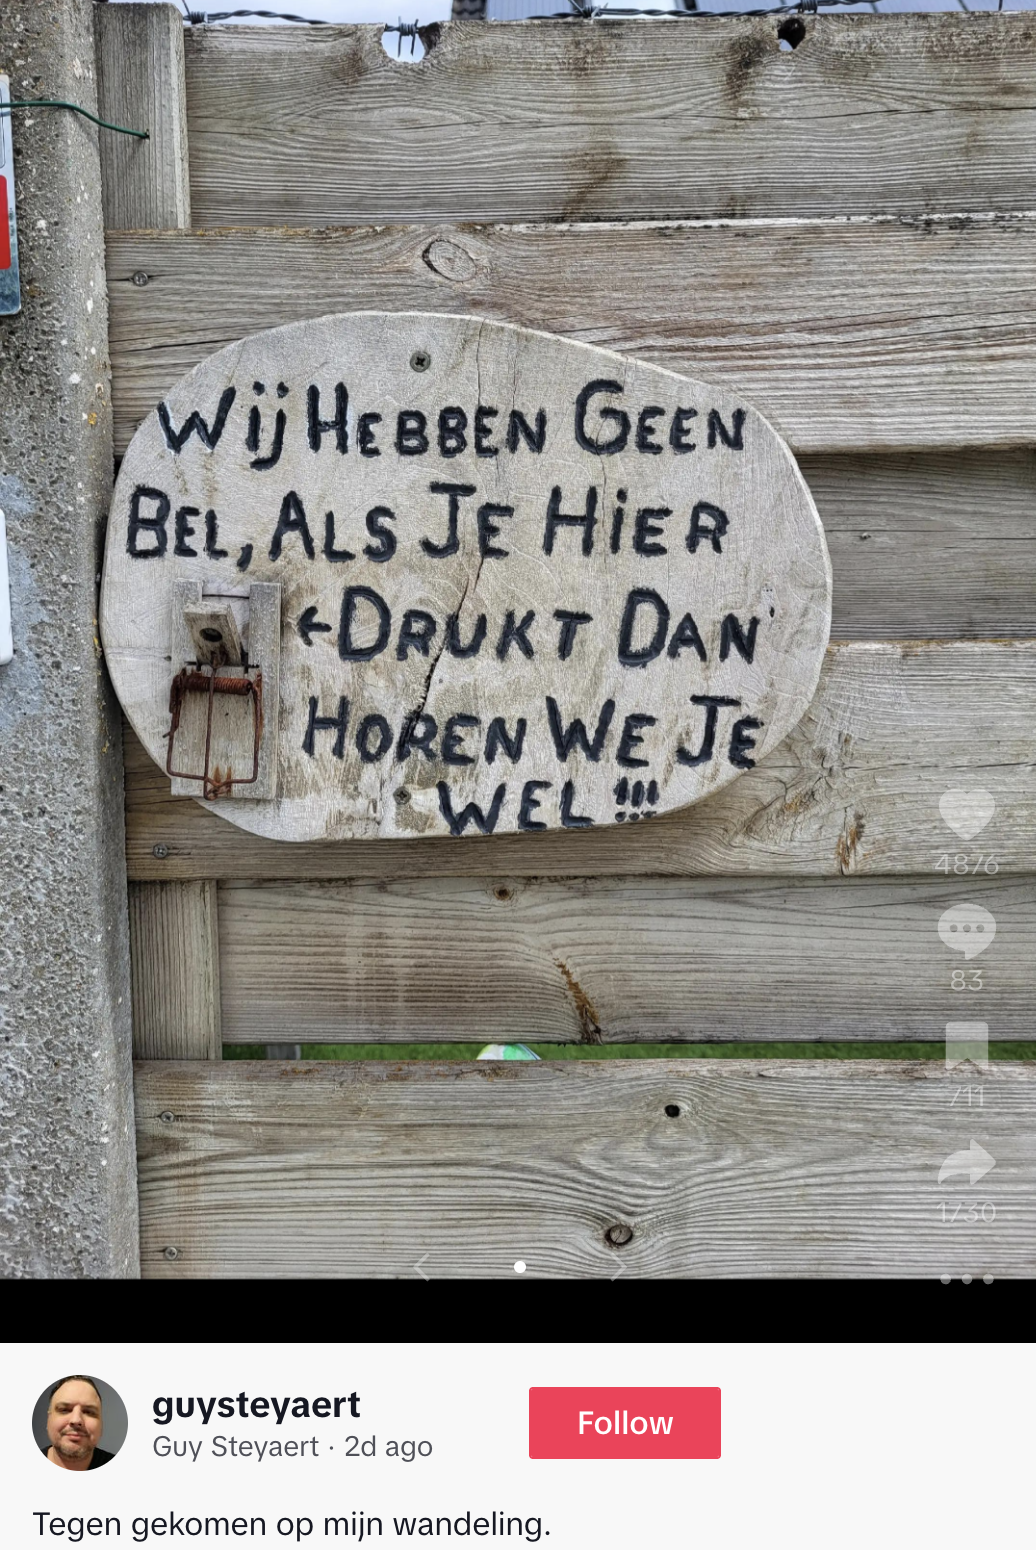 Wij HEBBEN GEEN
BEL, ALS JE HiER
← DRUKT DAN
HOREN WE JE
WEL !!!
4876
83
711
1730
guysteyaert
Guy Steyaert · 2d ago
Follow
Tegen gekomen op mijn wandeling.